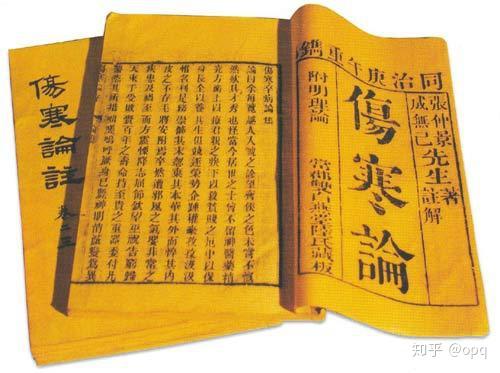 同治庚午重鐫
張仲景
成無己
先生
著
註解
傷寒論
附明理論 常郡雙白燕堂陸氏藏板
傷寒卒病論集
論曰余每覽越人入虢之診望齊侯之色未嘗不慨
然歎其才秀也怪當今居世之士曾不留神醫藥精
究方術上以療君親之疾下以救貧賤之厄中以保
身長全以養其生但競逐榮勢企踵權豪孜孜汲汲
惟名利是務崇飾其末忽棄其本華其外而悴其內
皮之不存毛將安附焉卒然遭邪風之氣嬰非常之
疾患及禍至而方震慄降志屈節欽望巫祝告窮歸
天束手受敗賫百年之壽命持至貴之重器委付凡
醫恣其所措咄嗟嗚呼厥身已斃神明消滅變為異
傷寒論註 卷二三
知乎 @opq